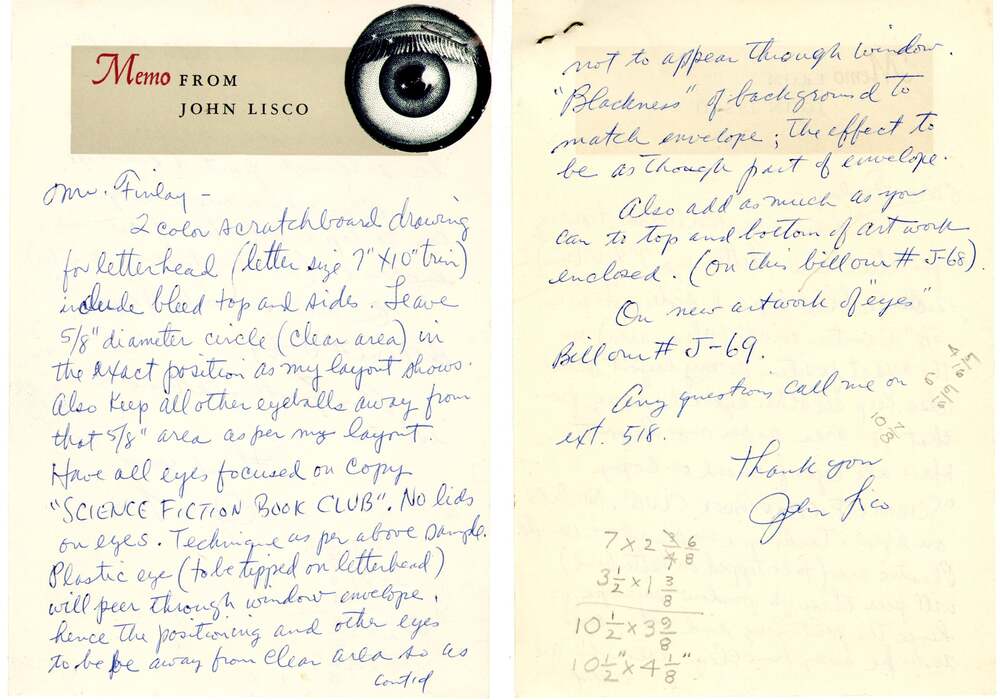 Memo FROM
JOHN LISCO
Mr. Finlay –
2 color scratchboard drawing
for letterhead (letter size 7" x 10" trim)
include bleed top and sides. Leave
5/8" diameter circle (clear area) in
the exact position as my layout shows.
Also keep all other eyeballs away from
that 5/8" area as per my layout.
Have all eyes focused on copy
"SCIENCE FICTION BOOK CLUB". No lids
on eyes. Technique as per above sample.
Plastic eye (to be tipped on letterhead)
will peer through window envelope,
hence the positioning and other eyes
to be be away from clear area so as
Cont'd
not to appear through window.
"Blackness" of background to
match envelope; the effect to
be as though part of envelope.
Also add as much as you
can to top and bottom of art work
enclosed. (On this bill our # J-68).
On new artwork of "eyes"
Bill our # J-69.
Any questions call me on
ext. 518.
Thank you
John Lisco
7 x 2 6/8
3 1/2 x 1 3/8
10 1/2 x 3 9/8
10 1/2" x 4 1/8"